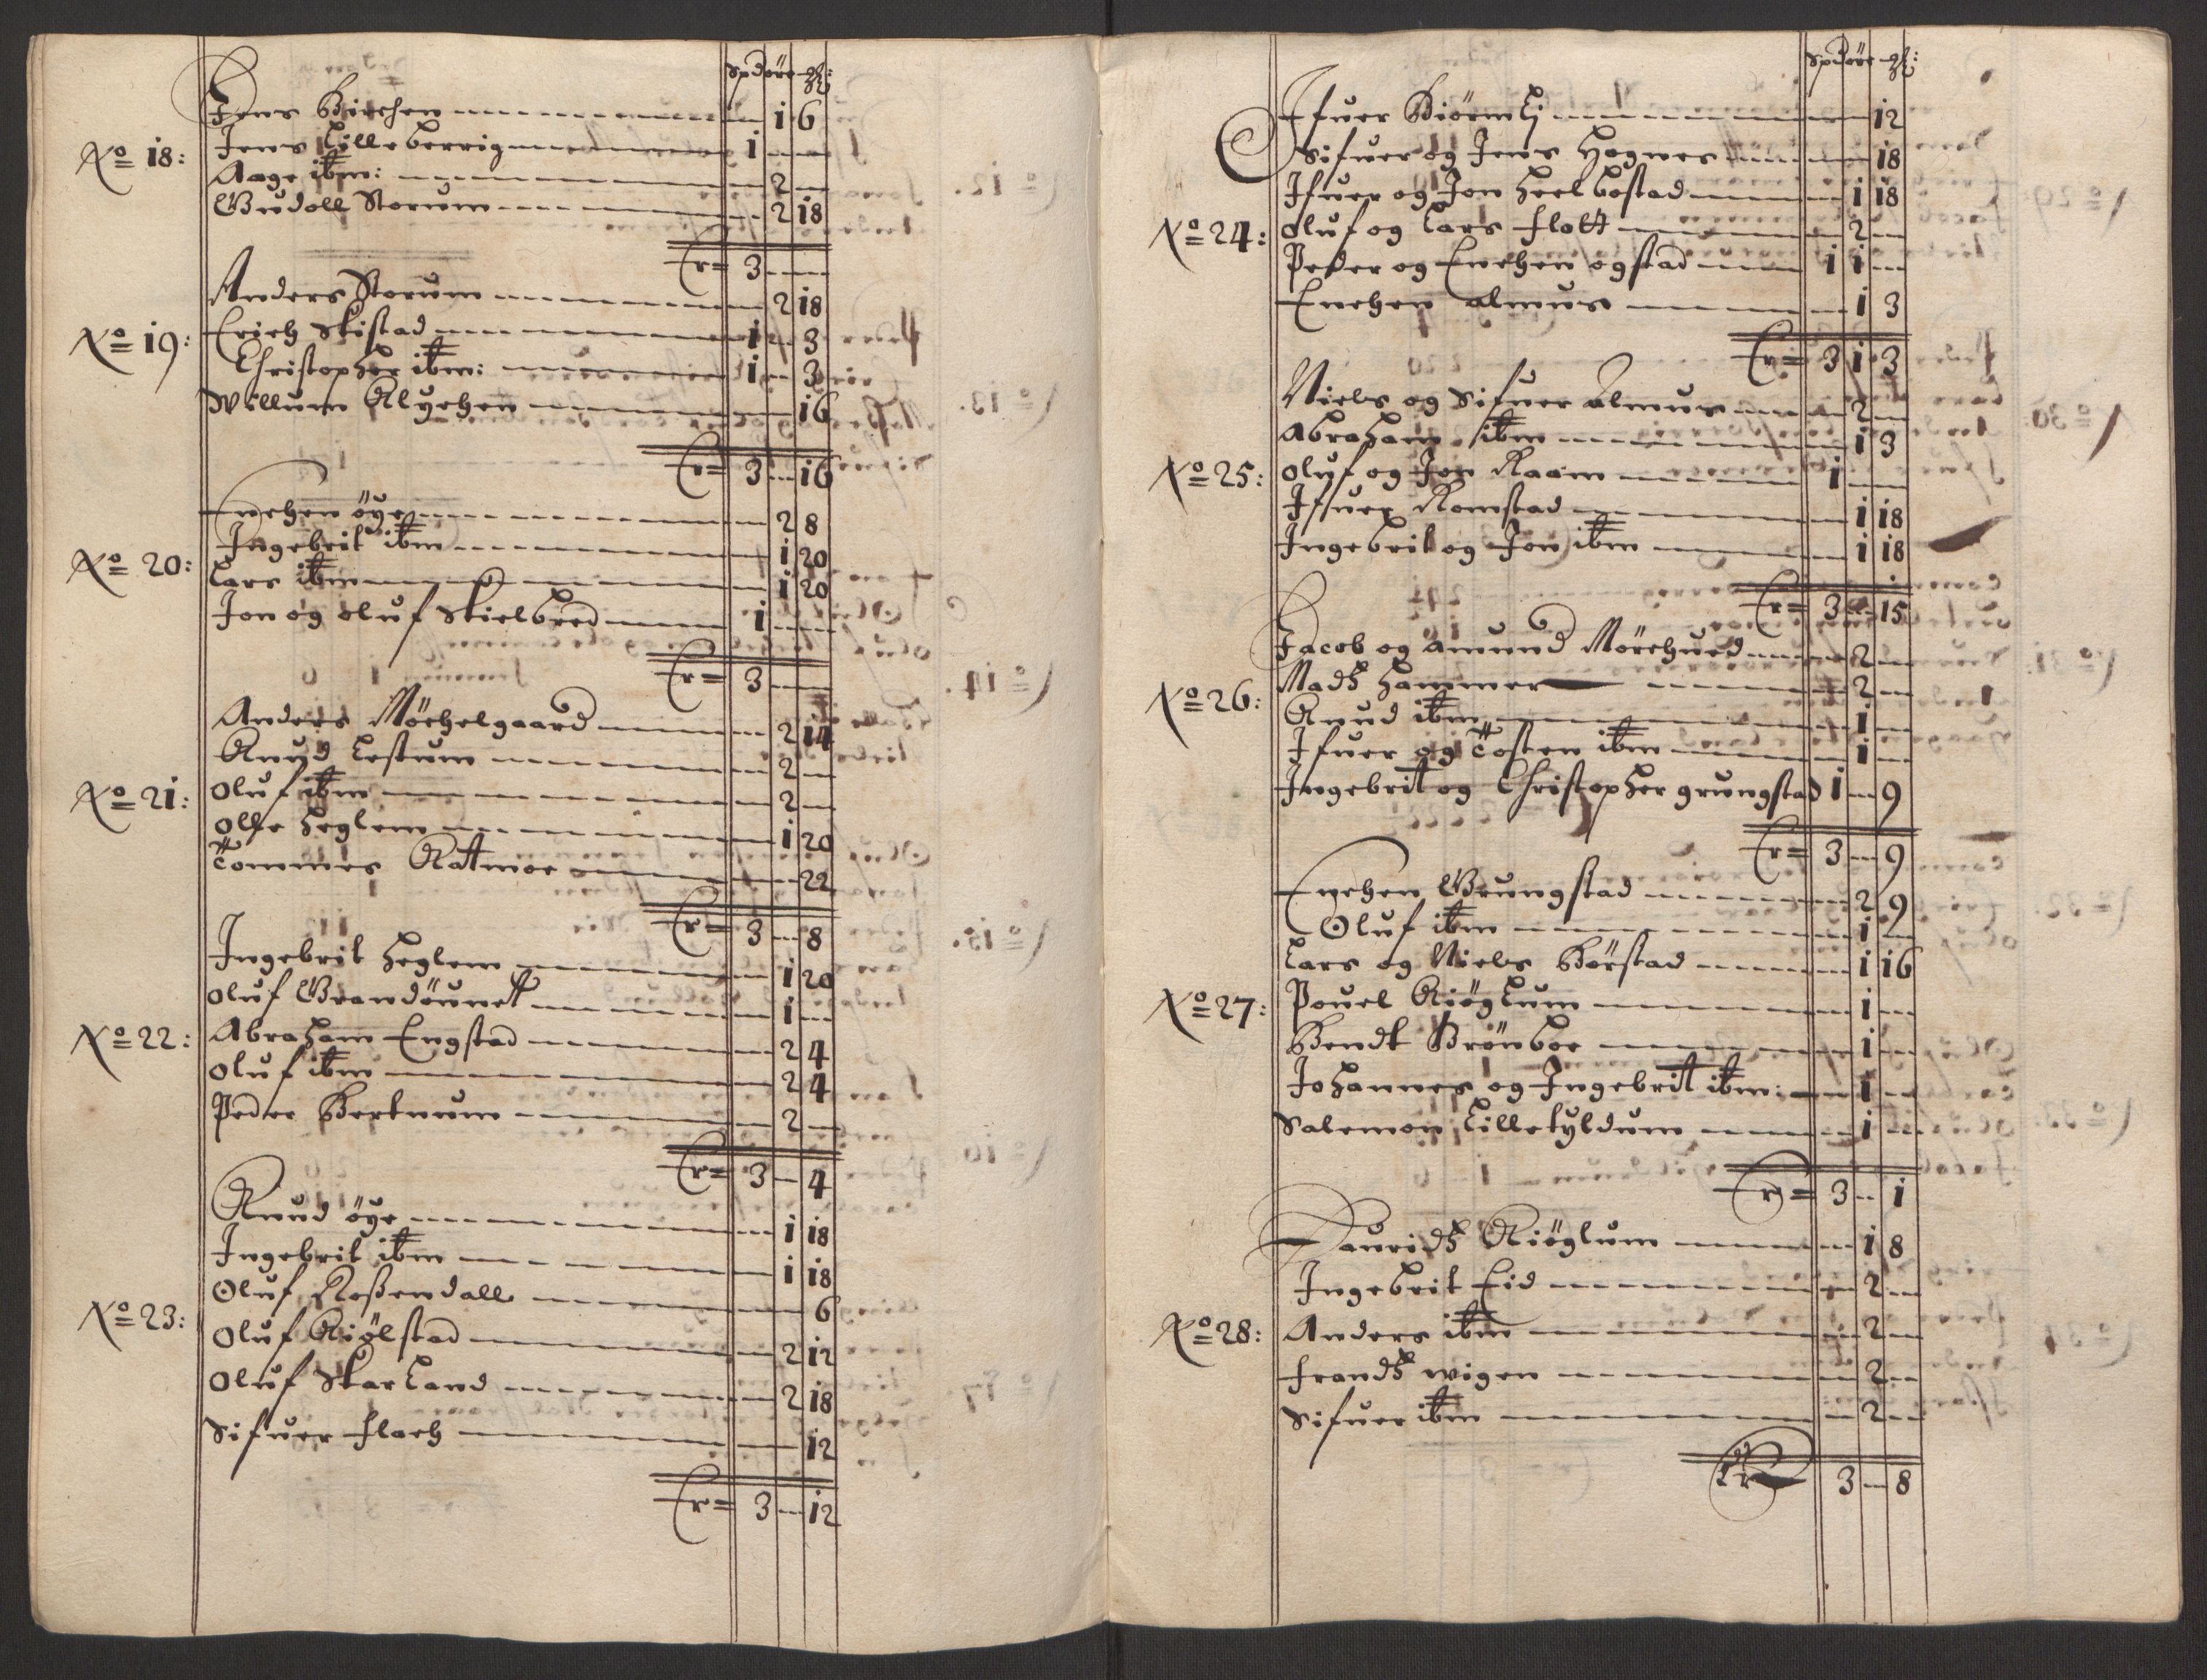 Spd öre
Jens Birchen 1 6
Jens Lilleberrig 1
No 18:
Aage ibm: 2
Gudoll Storum 2 18
Er= 3
Anders Storum 2 18
No 19:
Erich Skistad 1 3
Christopher ibm: 1 3
Willum Klychen 16
Er= 3 16
Enchen öye 2 8
Ingebrit ibm 1 20
No 20:
Lars ibm 1 20
Jon og oluf Skielbred 1
Er= 3
Anders Möchelgaard 2 14
Knud Lestum 2
No 21:
Oluf ibm 2
Olle Heglem 1 20
Tommes Ratmoe 22
Er= 3 8
Ingebrit Heglem 1 20
Oluf Grandöunet 1
No 22:
Abraham Engstad 2 4
Oluf ibm 2 4
Peder Bertnum 2
Er= 3 4
Knud öye 1 18
Ingebrit ibm 1 18
Oluf Roßendall 6
No 23:
Oluf Kiölstad 2 12
Oluf Skarland 2 18
Sifuer flach 12
Er= 3 12
Spd öre
Ifuer Biörnlj 12
Sifuer og Jens Hognes 18
Ifuer og Jon Heelbostad 1 18
No 24:
Oluf og Lars flott 2
Peder og Enchen ogstad 1 1
Enchen almus 1 3
Er= 3 1 3
Niels og Sifuer Almus 2
Abraham ibm 1 3
No 25:
Oluf og Jon Raam 1
Ifuer Romstad 1 18
Ingebrit og Jon ibm 1 18
Er= 3 15
Jacob og amund Mörchued 2
Madß Hammer 2
No 26:
Knud ibm 1
Ifuer og Tosten ibm 1
Ingebrit og Christopher grungstad 1 9
Er= 3 9
Enchen Grungstad 2 9
Oluf ibm 1
Lars og Niels Börstad 1 16
No 27:
Pouel Kiöglum 1
Bendt Brönboe 1
Johannes og Ingebrit ibm: 1
Salemon Lillefyldum 1
Er= 3 1
Lauridß Kiöglum 1 8
Ingebrit Eid 2
No 28:
Anders ibm 2
frandß wigen 2
Sifuer ibm 2
Er 3 8